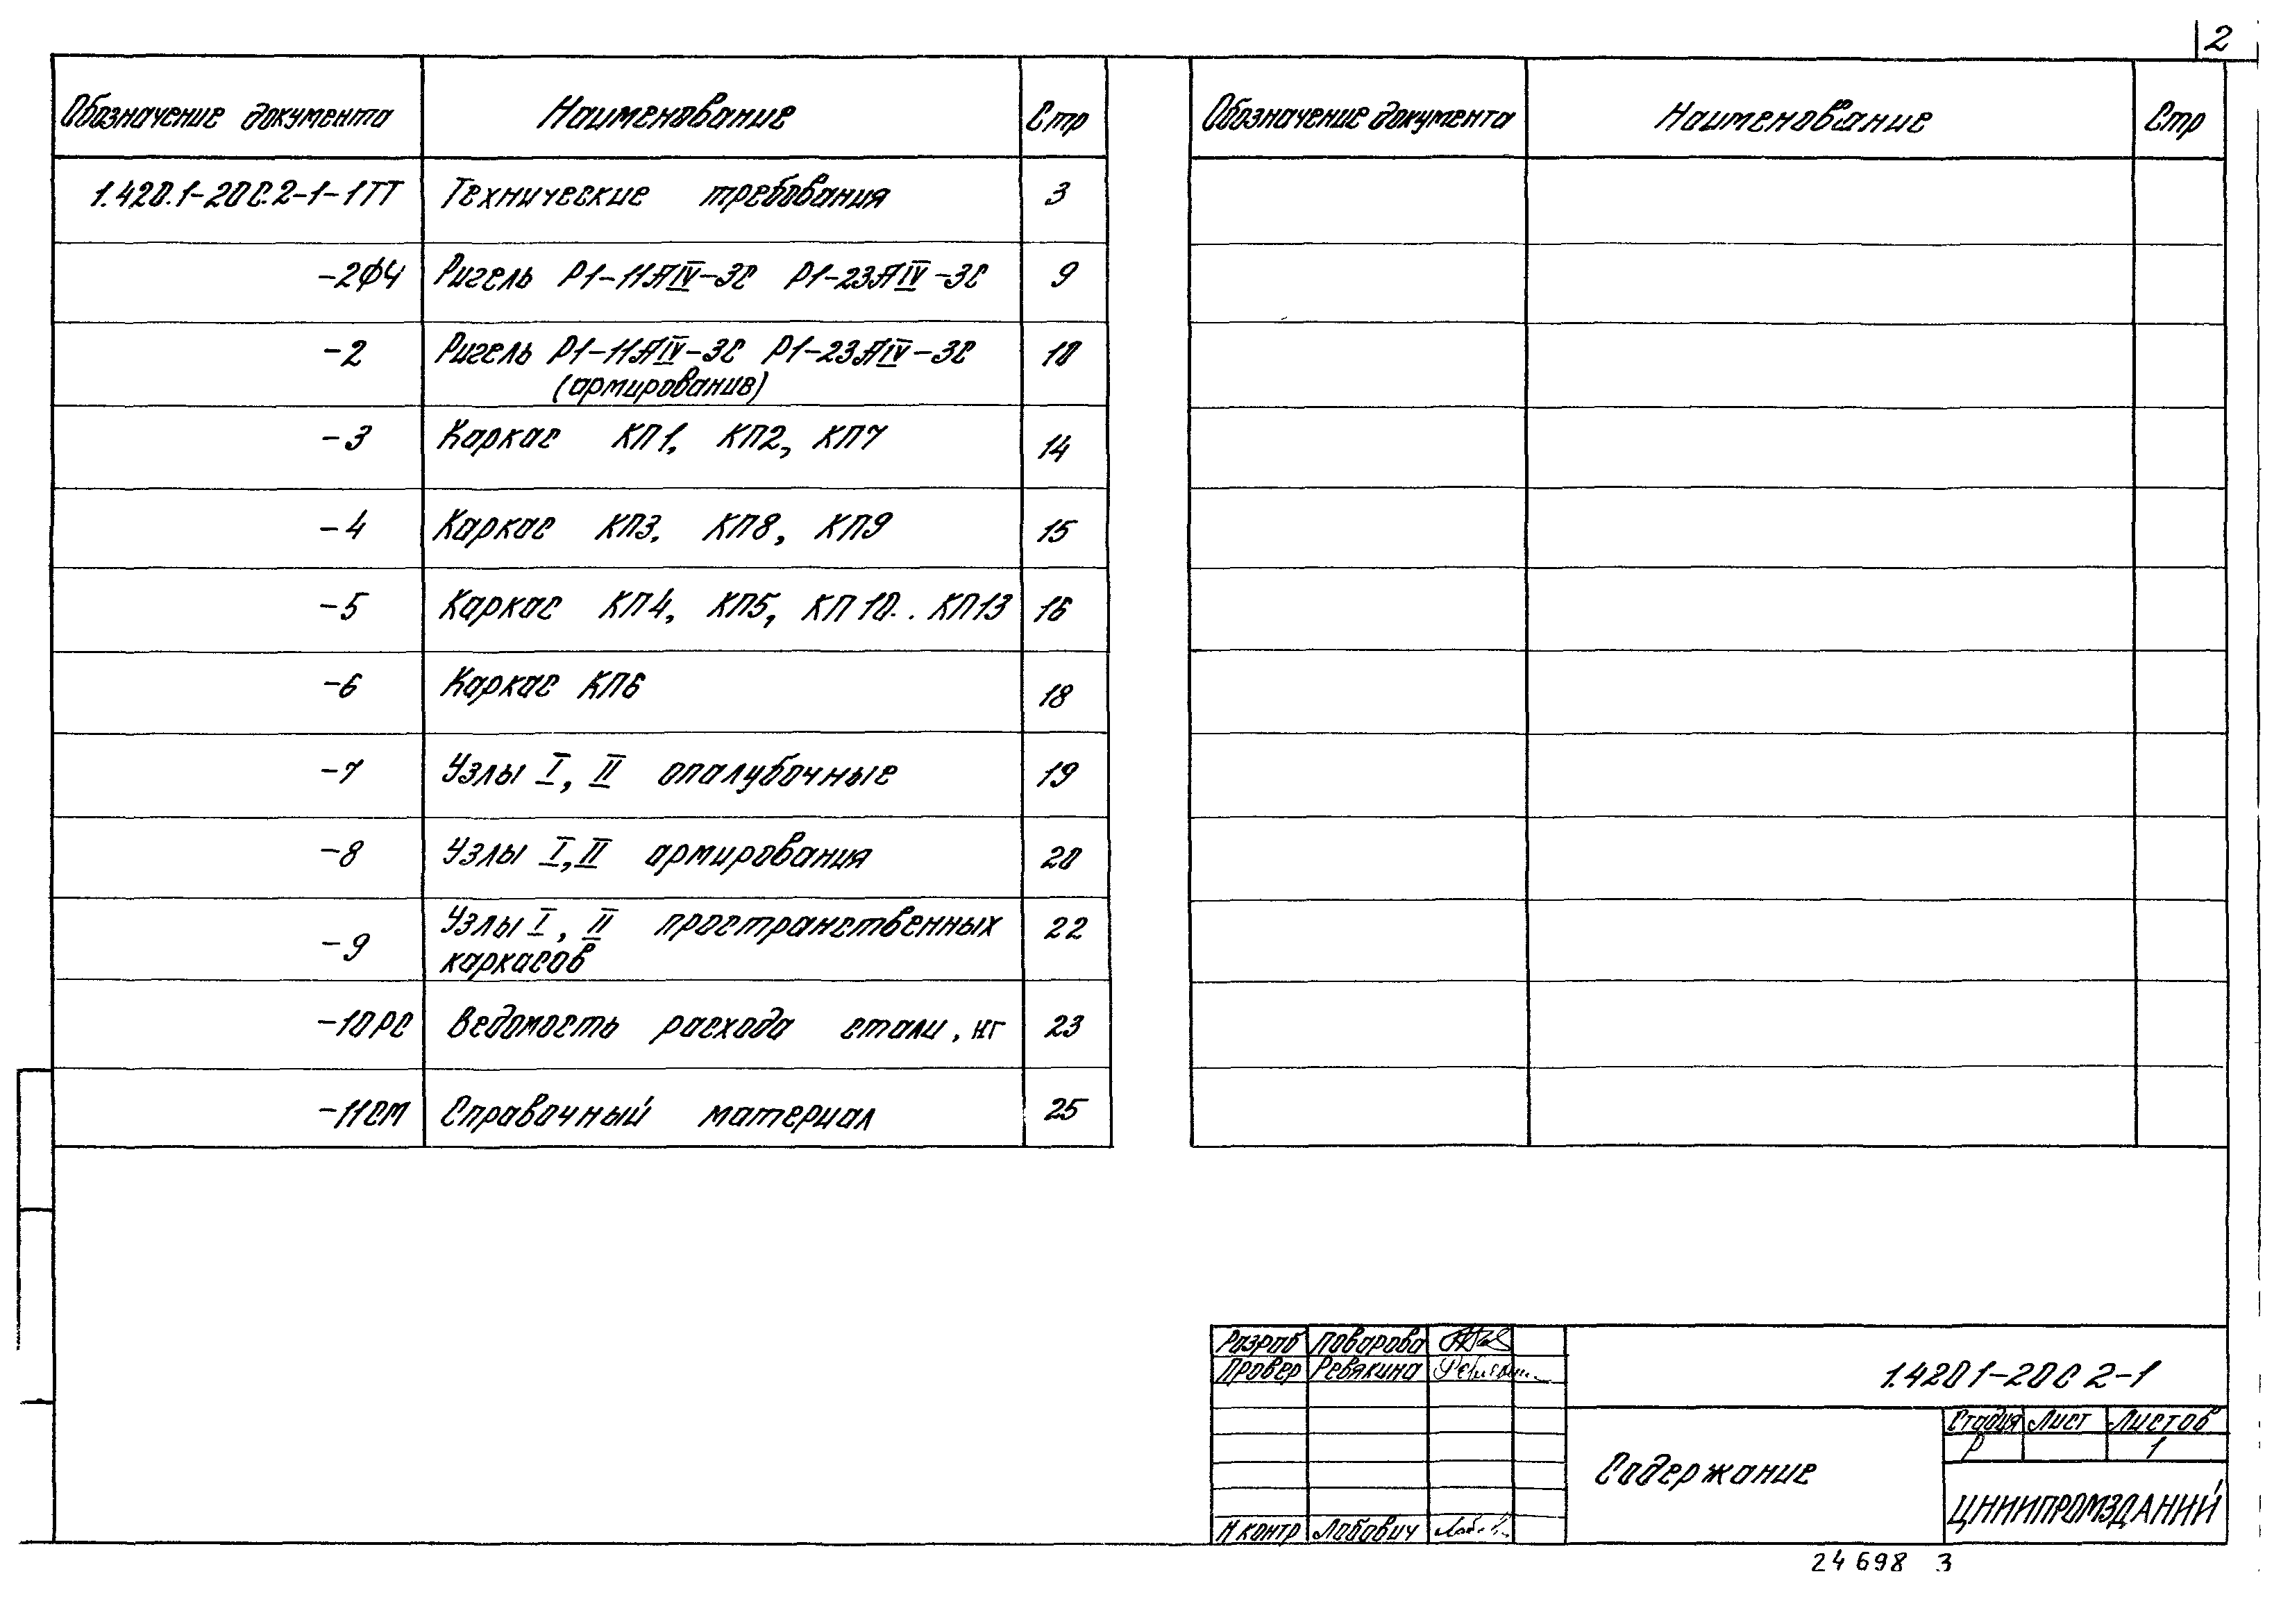 2
Обозначение документа Наименование Стр
1.420.1-20С.2-1-1ТТ Технические требования 3
-2ФЧ Ригель Р1-11АIV-3С Р1-23АIV-3С 9
-2 Ригель Р1-11АIV-3С Р1-23АIV-3С 10
(армирование)
-3 Каркас КП1, КП2, КП7 14
-4 Каркас КП3, КП8, КП9 15
-5 Каркас КП4, КП5, КП10.. КП13 16
-6 Каркас КП6 18
-7 Узлы I, II опалубочные 19
-8 Узлы I, II армирования 20
-9 Узлы I, II пространственных 22
каркасов
-10РС Ведомость расхода стали, кг 23
-11СМ Справочный материал 25
Обозначение документа Наименование Стр
Разраб Поварова
Провер Ревякина
Н контр Лабович
1.420 1-20С 2-1
Содержание
Стадия Лист Листов
Р 1
ЦНИИПРОМЗДАНИЙ
24698 3